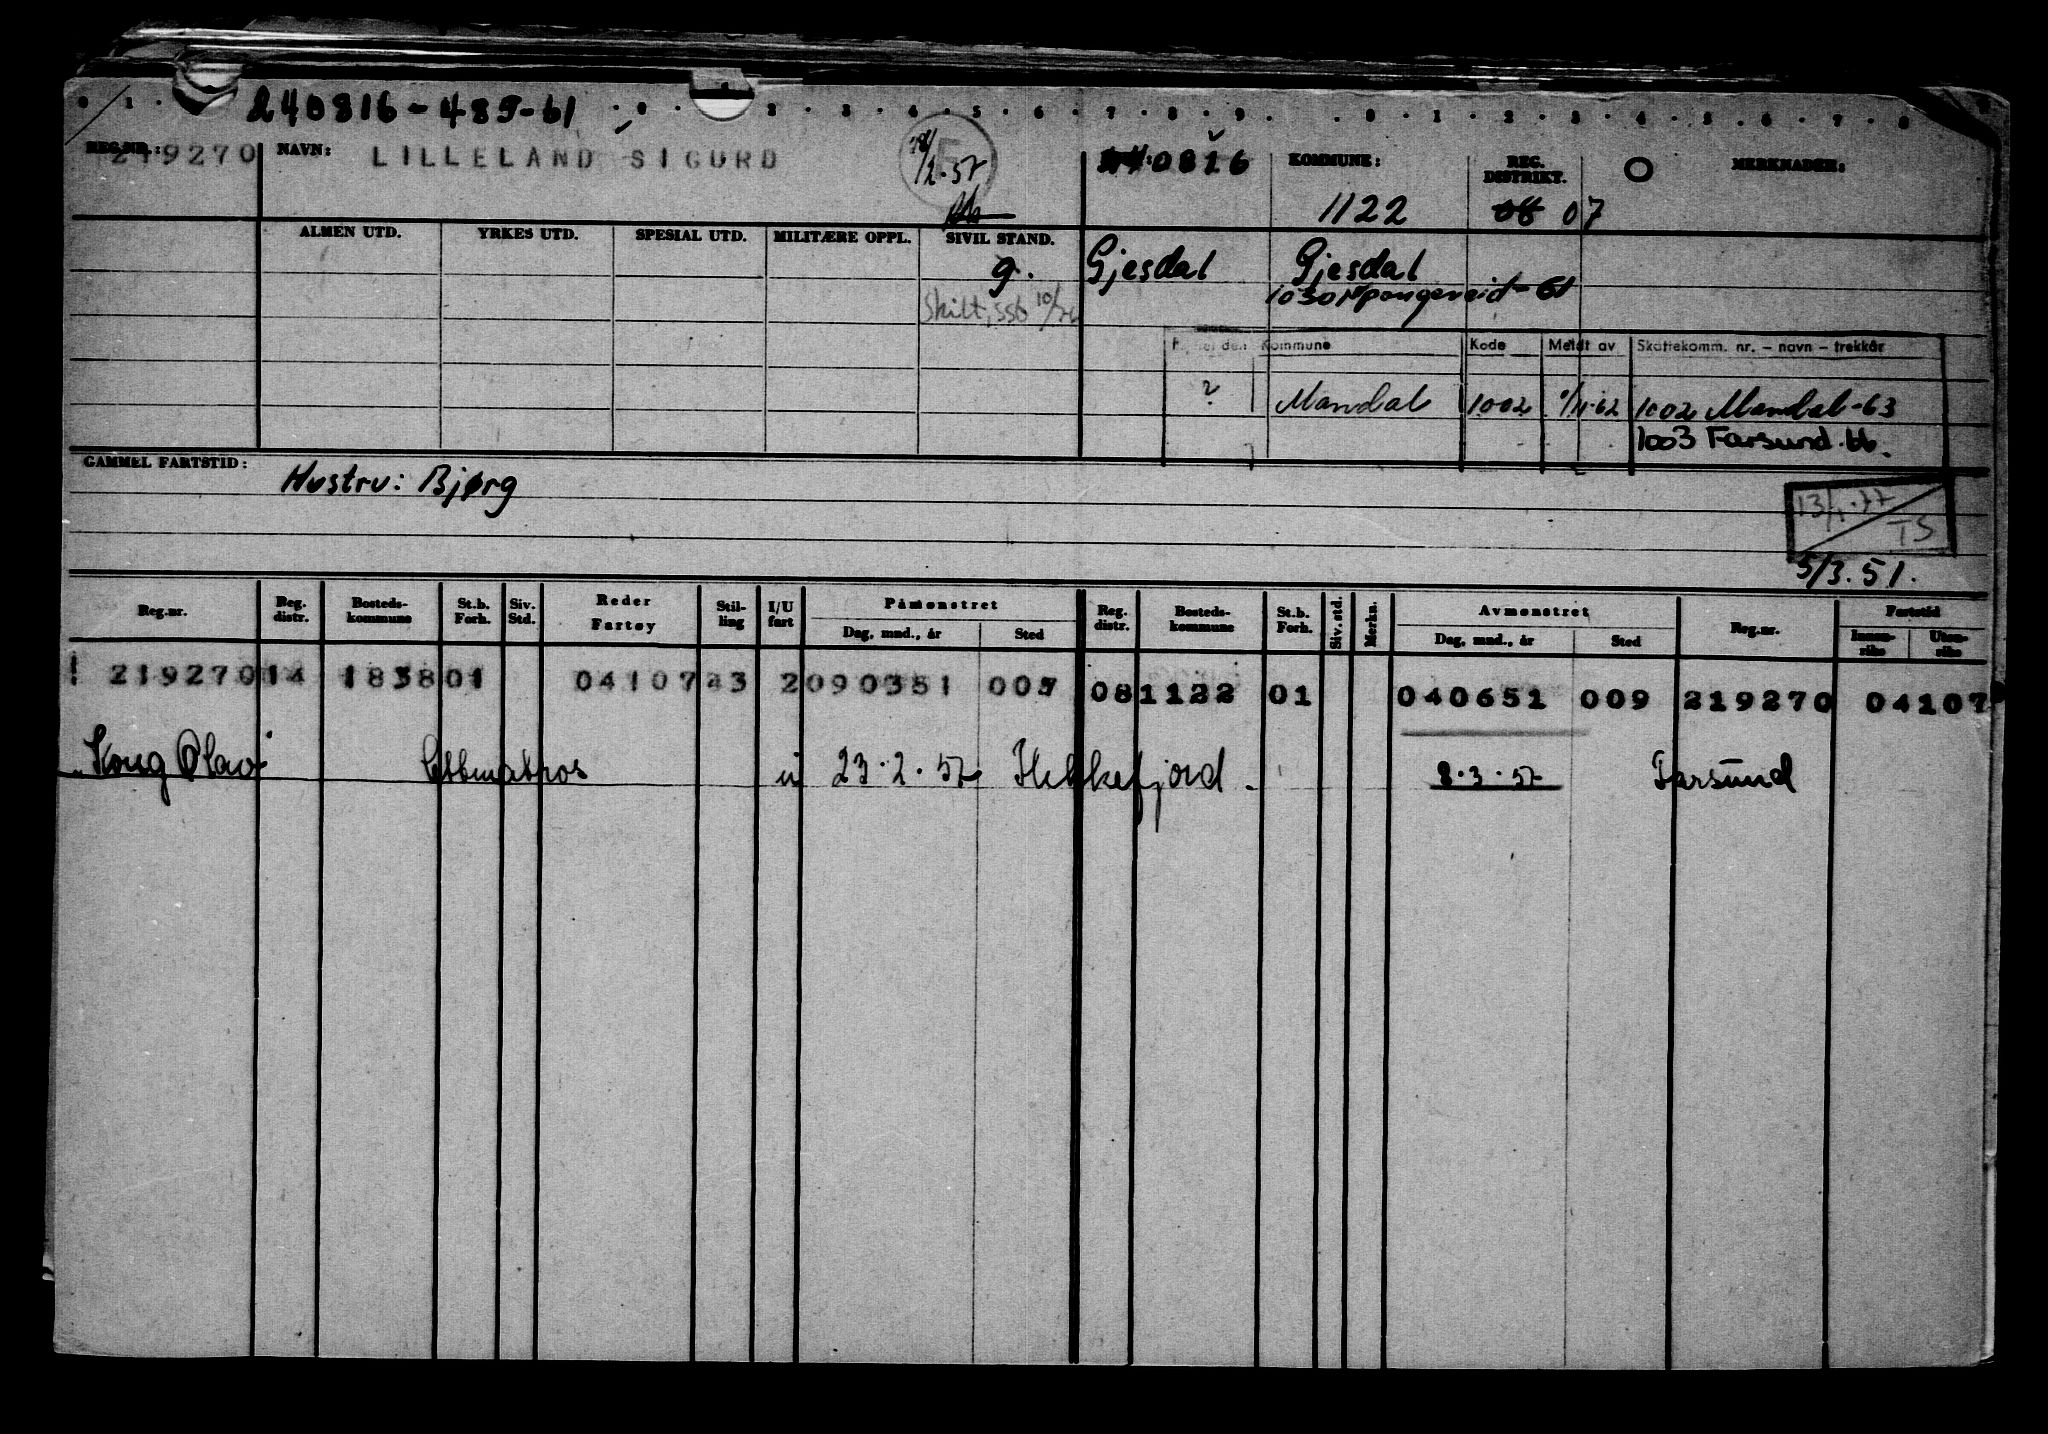 240816-489-61
REG.NR.: 219270 NAVN: LILLELAND SIGURD 0816 KOMMUNE: REG. DISTRIKT. MERKNADER:
/2.57
1122 07
ALMEN UTD. YRKES UTD. SPESIAL UTD. MILITÆRE OPPL. SIVIL STAND.
g. Gjesdal Gjesdal
Skilt, SSB 10/ 1030 -61
Kommune Kode Meldt av Skattekomm. nr. – navn – trekkår
? Mandal 1002 62 1002 Mandal-63
1003 Farsund.
GAMMEL FARTSTID:
Hustru: Bjørg
13/1.77
TS
5/3.51.
Reg.nr. Reg. distr. Bosteds-kommune St.b. Forh. Siv. Std. Reder Fartøy Stil-ling I/U fart Påmønstret Dag, mnd., år Sted Reg. distr. Bosteds-kommune St.b. Forh. Siv. std. Merkn. Avmønstret Dag, mnd., år Sted Reg.nr. Fartstid Innen-riks Uten-riks
219270 14 1838 01 04107 43 2 090351 005 08 1122 01 040651 009 219270 04107
Kong Olav u 23.2.57 8.3.57 Farsund